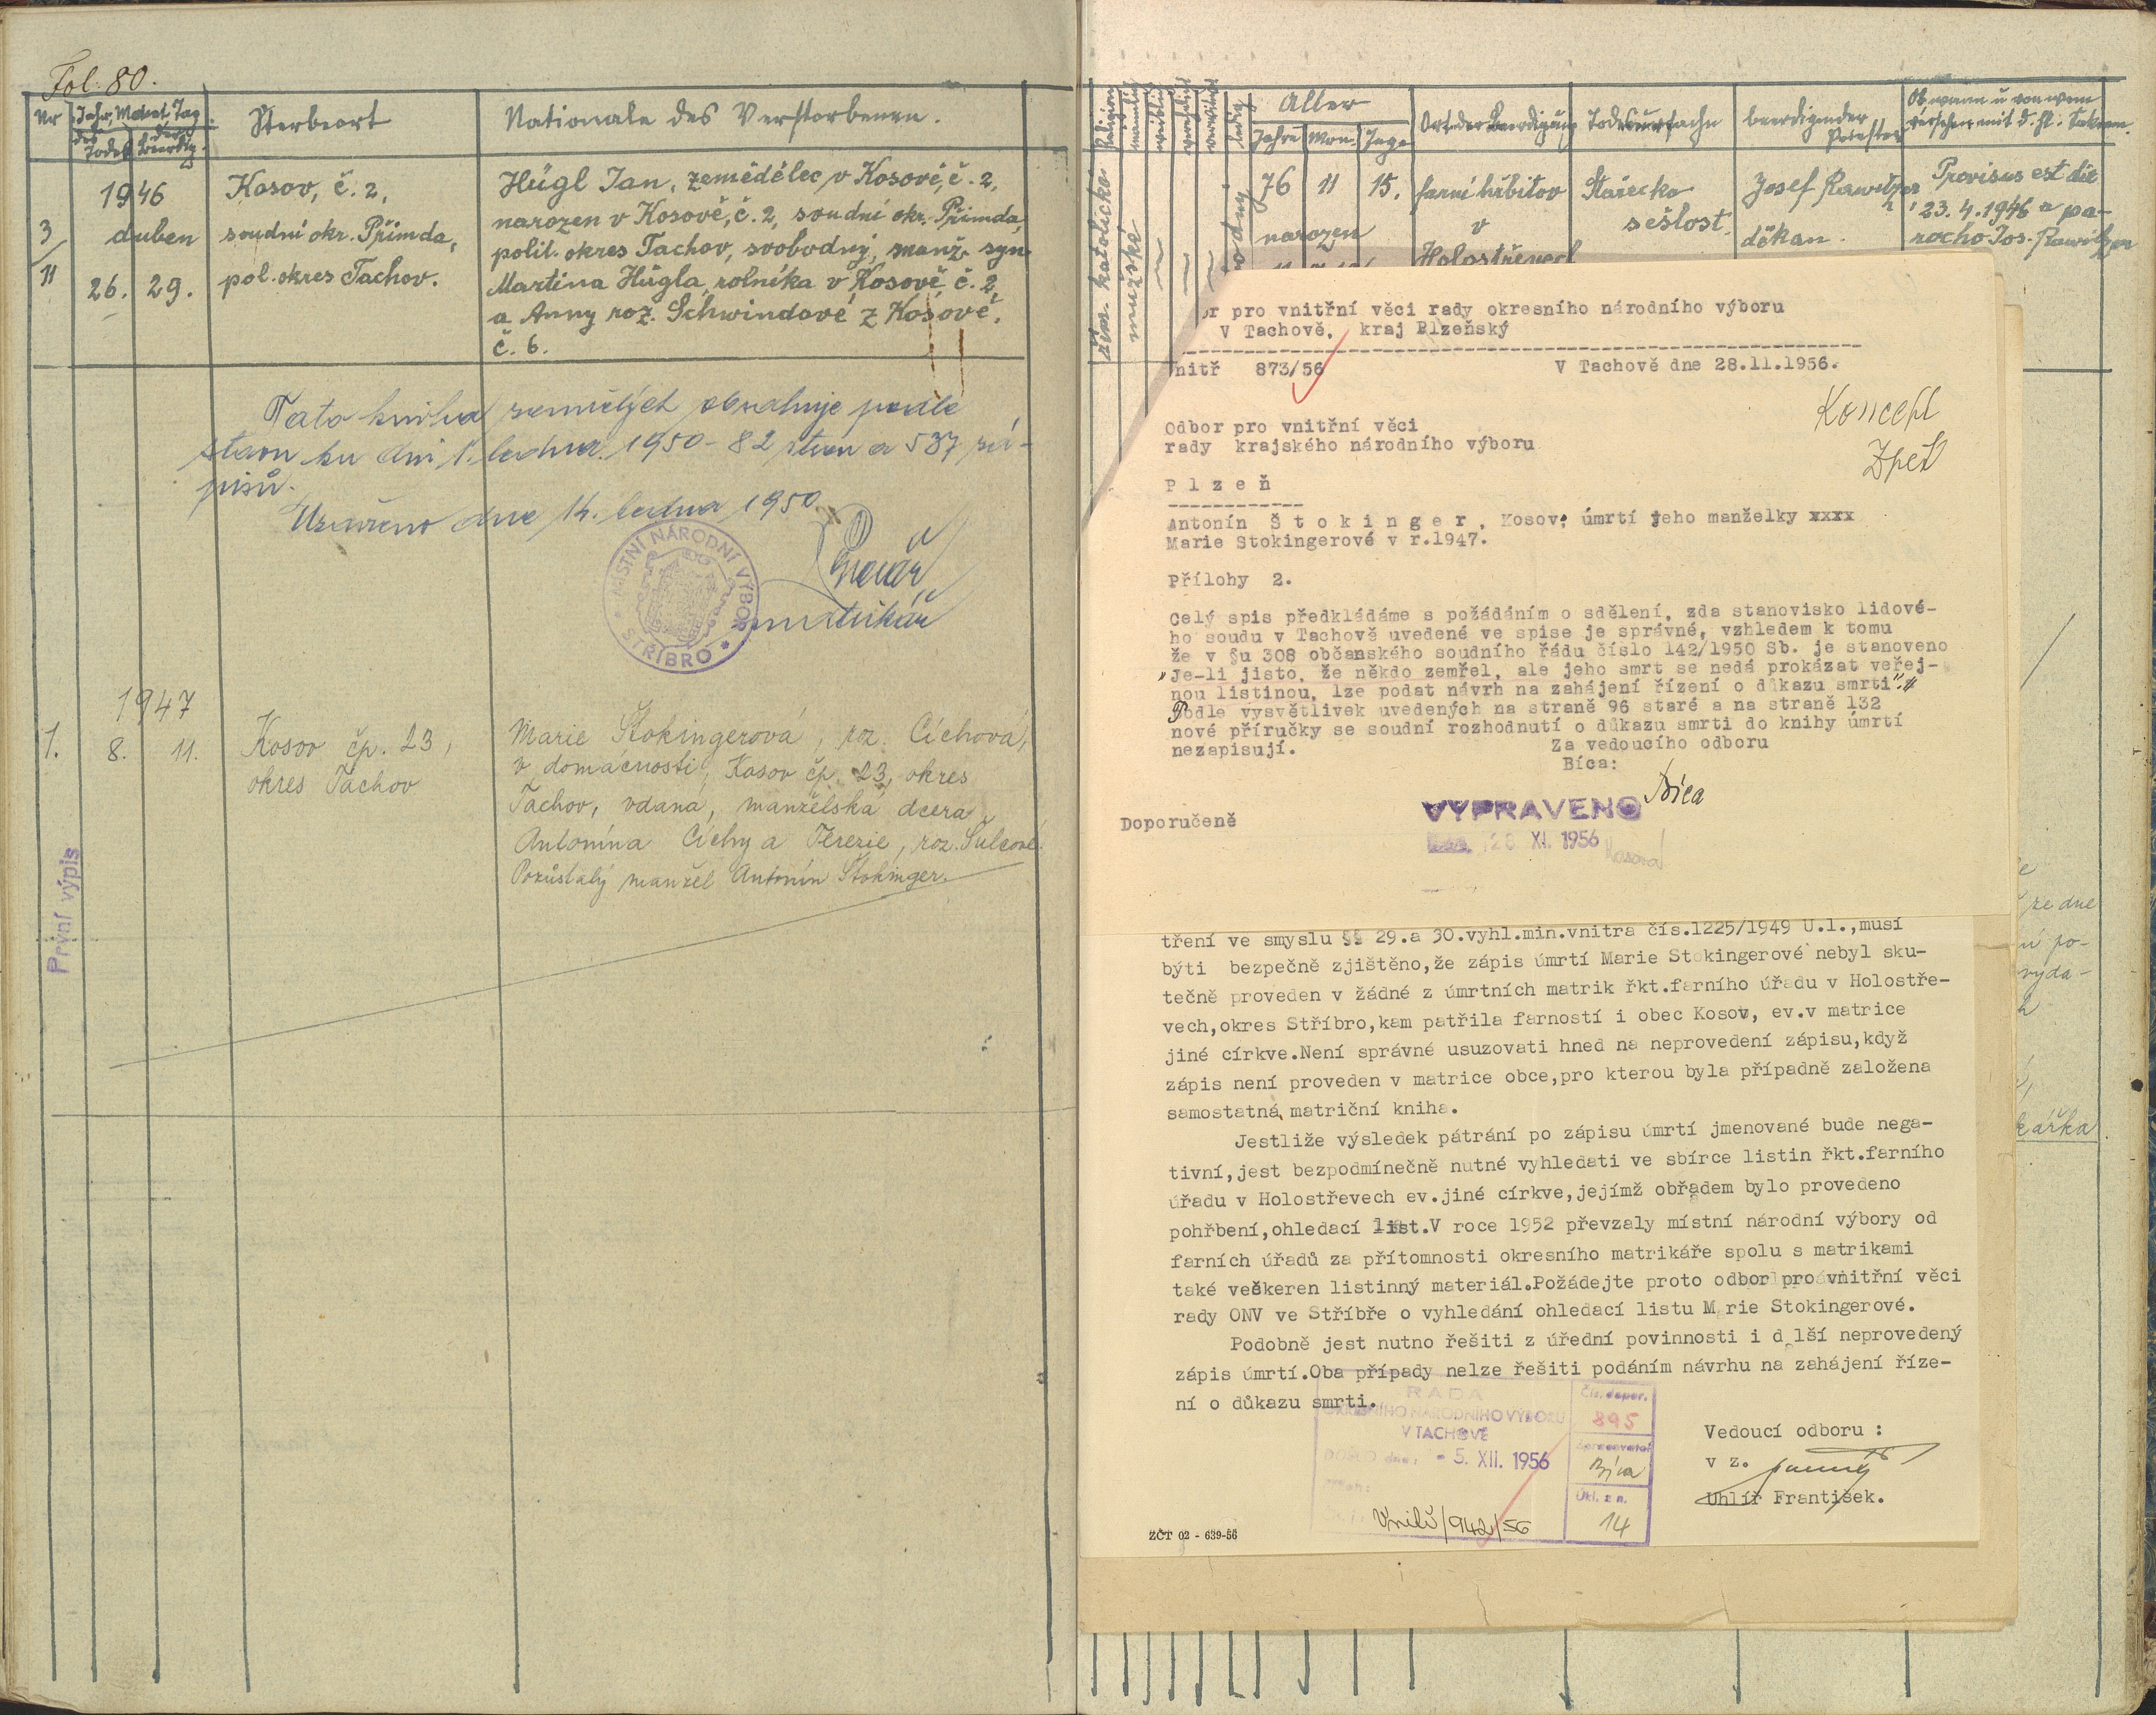 Fol. 80.
Nr
Jahr, Monat Tag
des Todes
der Beerdig.
Sterbeort
Nationale des Verstorbenen.
1946
3
11
duben
26. 29.
Kosov, č. 2,
soudní okr. Přimda,
pol. okres Tachov.
Hügl Jan, zemědělec v Kosově, č. 2,
narozen v Kosově, č. 2, soudní okr. Přimda,
polit. okres Tachov, svobodný, manž. syn
Martina Hügla, rolníka v Kosově č. 2,
a Anny roz. Schwindové z Kosové,
č. 6.
Tato kniha zemřelých obsahuje podle
stavu ku dni 1. ledna 1950 - 82 stran a 537 zá-
pisů.
Uzavřeno dne 14. ledna 1950
matrikář
MÍSTNÍ NÁRODNÍ VÝBOR
* STŘÍBRO *
1947
1.
8. 11.
Kosov čp. 23,
okres Tachov
Marie Štokingerová, roz. Cíchová,
v domácnosti, Kosov čp. 23, okres
Tachov, vdaná, manželská dcera
Antonína Cíchy a Terezie, roz. Šulcové.
Pozůstalý manžel Antonín Štokinger.
První výpis
Religion
männlich
weiblich
ledig
Alter
Jahre Mon. Tage
Ort der Beerdigung
Todesursache
beerdigender Priester
Ob wann u von wem
versehen mit d. hl. Sakram.
řím. katolické
mužské
76 11 15.
narozen
farní hřbitov
v
Holostřevech
Stařecká
sešlost.
Josef Rawitzer
děkan.
Provisus est die
23. 4. 1946 a pa-
rocho Jos. Rawitzer
or pro vnitřní věci rady okresního národního výboru
V Tachově, kraj Plzeňský
nitř 873/56
V Tachově dne 28.11.1956.
Koncept
Zpět
Odbor pro vnitřní věci
rady krajského národního výboru
P l z e ň
Antonín Š t o k i n g e r , Kosov; úmrtí jeho manželky xxxx
Marie Stokingerové v r.1947.
Přílohy 2.
Celý spis předkládáme s požádáním o sdělení, zda stanovisko lidové-
ho soudu v Tachově uvedené ve spise je správné, vzhledem k tomu
že v §u 308 občanského soudního řádu číslo 142/1950 Sb. je stanoveno
"Je-li jisto, že někdo zemřel, ale jeho smrt se nedá prokázat veřej-
nou listinou, lze podat návrh na zahájení řízení o důkazu smrti".
Podle vysvětlivek uvedených na straně 96 staré a na straně 132
nové příručky se soudní rozhodnutí o důkazu smrti do knihy úmrtí
nezapisují.
Za vedoucího odboru
Bíca:
Bíca
Doporučeně
VYPRAVENO
28 XI. 1956
tření ve smyslu §§ 29.a 30.vyhl.min.vnitra čís.1225/1949 Ú.l.,musí
býti bezpečně zjištěno,že zápis úmrtí Marie Stokingerové nebyl sku-
tečně proveden v žádné z úmrtních matrik řkt.farního úřadu v Holostře-
vech,okres Stříbro,kam patřila farností i obec Kosov, ev.v matrice
jiné církve.Není správné usuzovati hned na neprovedení zápisu,když
zápis není proveden v matrice obce,pro kterou byla případně založena
samostatná matriční kniha.
Jestliže výsledek pátrání po zápisu úmrtí jmenované bude nega-
tivní,jest bezpodmínečně nutné vyhledati ve sbírce listin řkt.farního
úřadu v Holostřevech ev.jiné církve,jejímž obřadem bylo provedeno
pohřbení,ohledací list.V roce 1952 převzaly místní národní výbory od
farních úřadů za přítomnosti okresního matrikáře spolu s matrikami
také veškeren listinný materiál.Požádejte proto odbor pro vnitřní věci
rady ONV ve Stříbře o vyhledání ohledací listu Marie Stokingerové.
Podobně jest nutno řešiti z úřední povinnosti i další neprovedený
zápis úmrtí.Oba případy nelze řešiti podáním návrhu na zahájení říze-
ní o důkazu smrti.
RADA
OKRESNÍHO NÁRODNÍHO VÝBORU
V TACHOVĚ
DOŠLO dne: - 5. XII. 1956
Vnitř/942/56
Čís. depor.
895
Zpracovatel
Bíca
Ukl. zn.
14
Vedoucí odboru :
v z.
Uhlíř František.
ZČT 02 - 639-56
ze dne
po-
vyda-
kářka